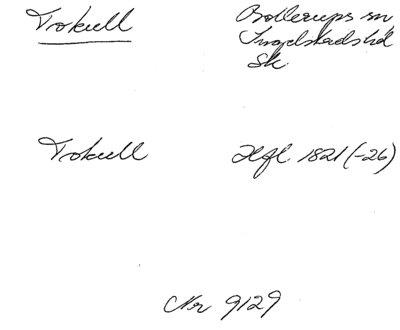 Trokull
Bollerups sn
Ingelstads hd
Sk
Trokull
Hfl 1821 (-26)
Nr 9129